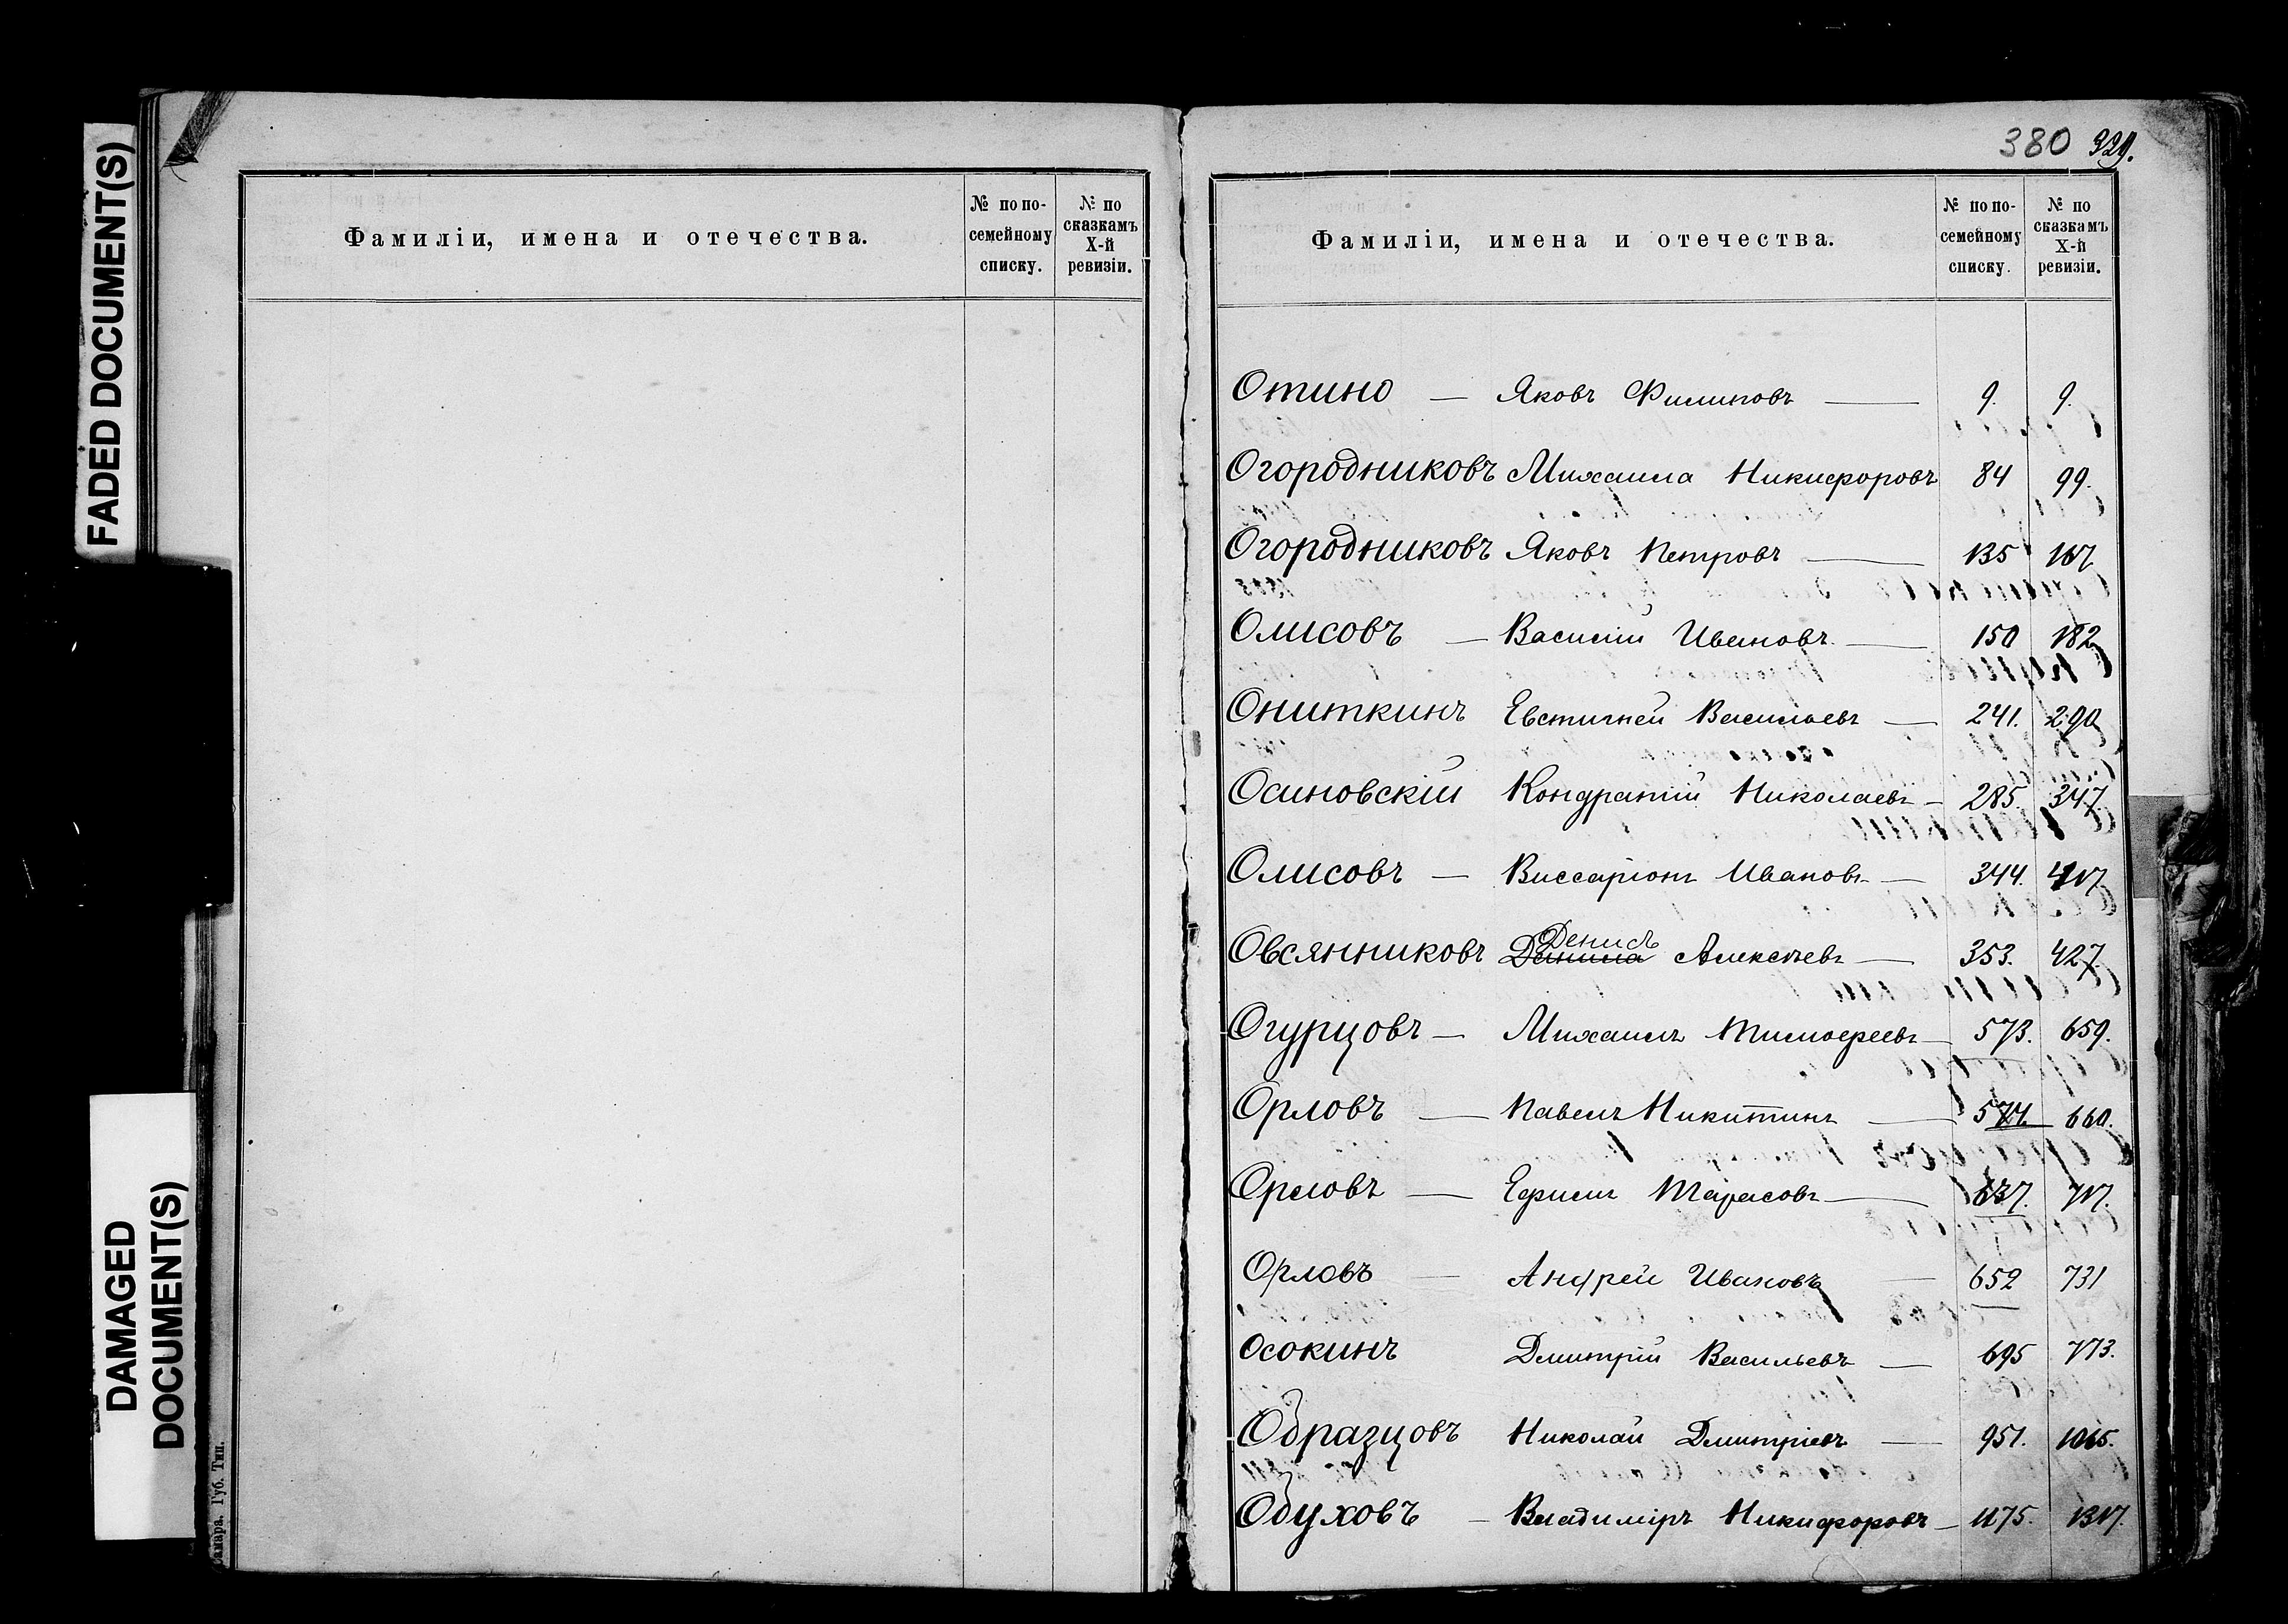 FADED DOCUMENT(S)
DAMAGED
DOCUMENT(S)
Губ. Тип.
Фамиліи, имена и отечества.
№ по по-
семейному
списку.
№ по
сказкамъ
X-й
ревизіи.
380 329.
Фамиліи, имена и отечества.
№ по по-
семейному
списку.
№ по
сказкамъ
X-й
ревизіи.
Отино — Яковъ Филиповъ — 9. 9.
Огородниковъ Михаила Никифоровъ 84 99.
Огородниковъ Яковъ Петровъ — 135 167
Олисовъ — Василій Ивановъ — 150 182
Ониткинъ Евстигней Васильевъ — 241. 290
Осиновскій Кондратій Николаевъ — 285. 347.
Олисовъ — Виссаріонъ Ивановъ — 344. 417.
Денисъ
Овсянниковъ Данила Алексѣевъ — 353. 427.
Огурцовъ — Михаилъ Тимоѳеевъ — 573. 659.
Орловъ — Павелъ Никитинъ — 574. 660.
Орловъ — Ефимъ Тарасовъ — 637. 717.
Орловъ — Андрей Ивановъ — 652 731
Осокинъ Дмитрій Васильевъ — 695 773.
Образцовъ Николай Дмитріевъ — 951. 1065.
Обуховъ — Владиміръ Никифоровъ — 1175. 1317.